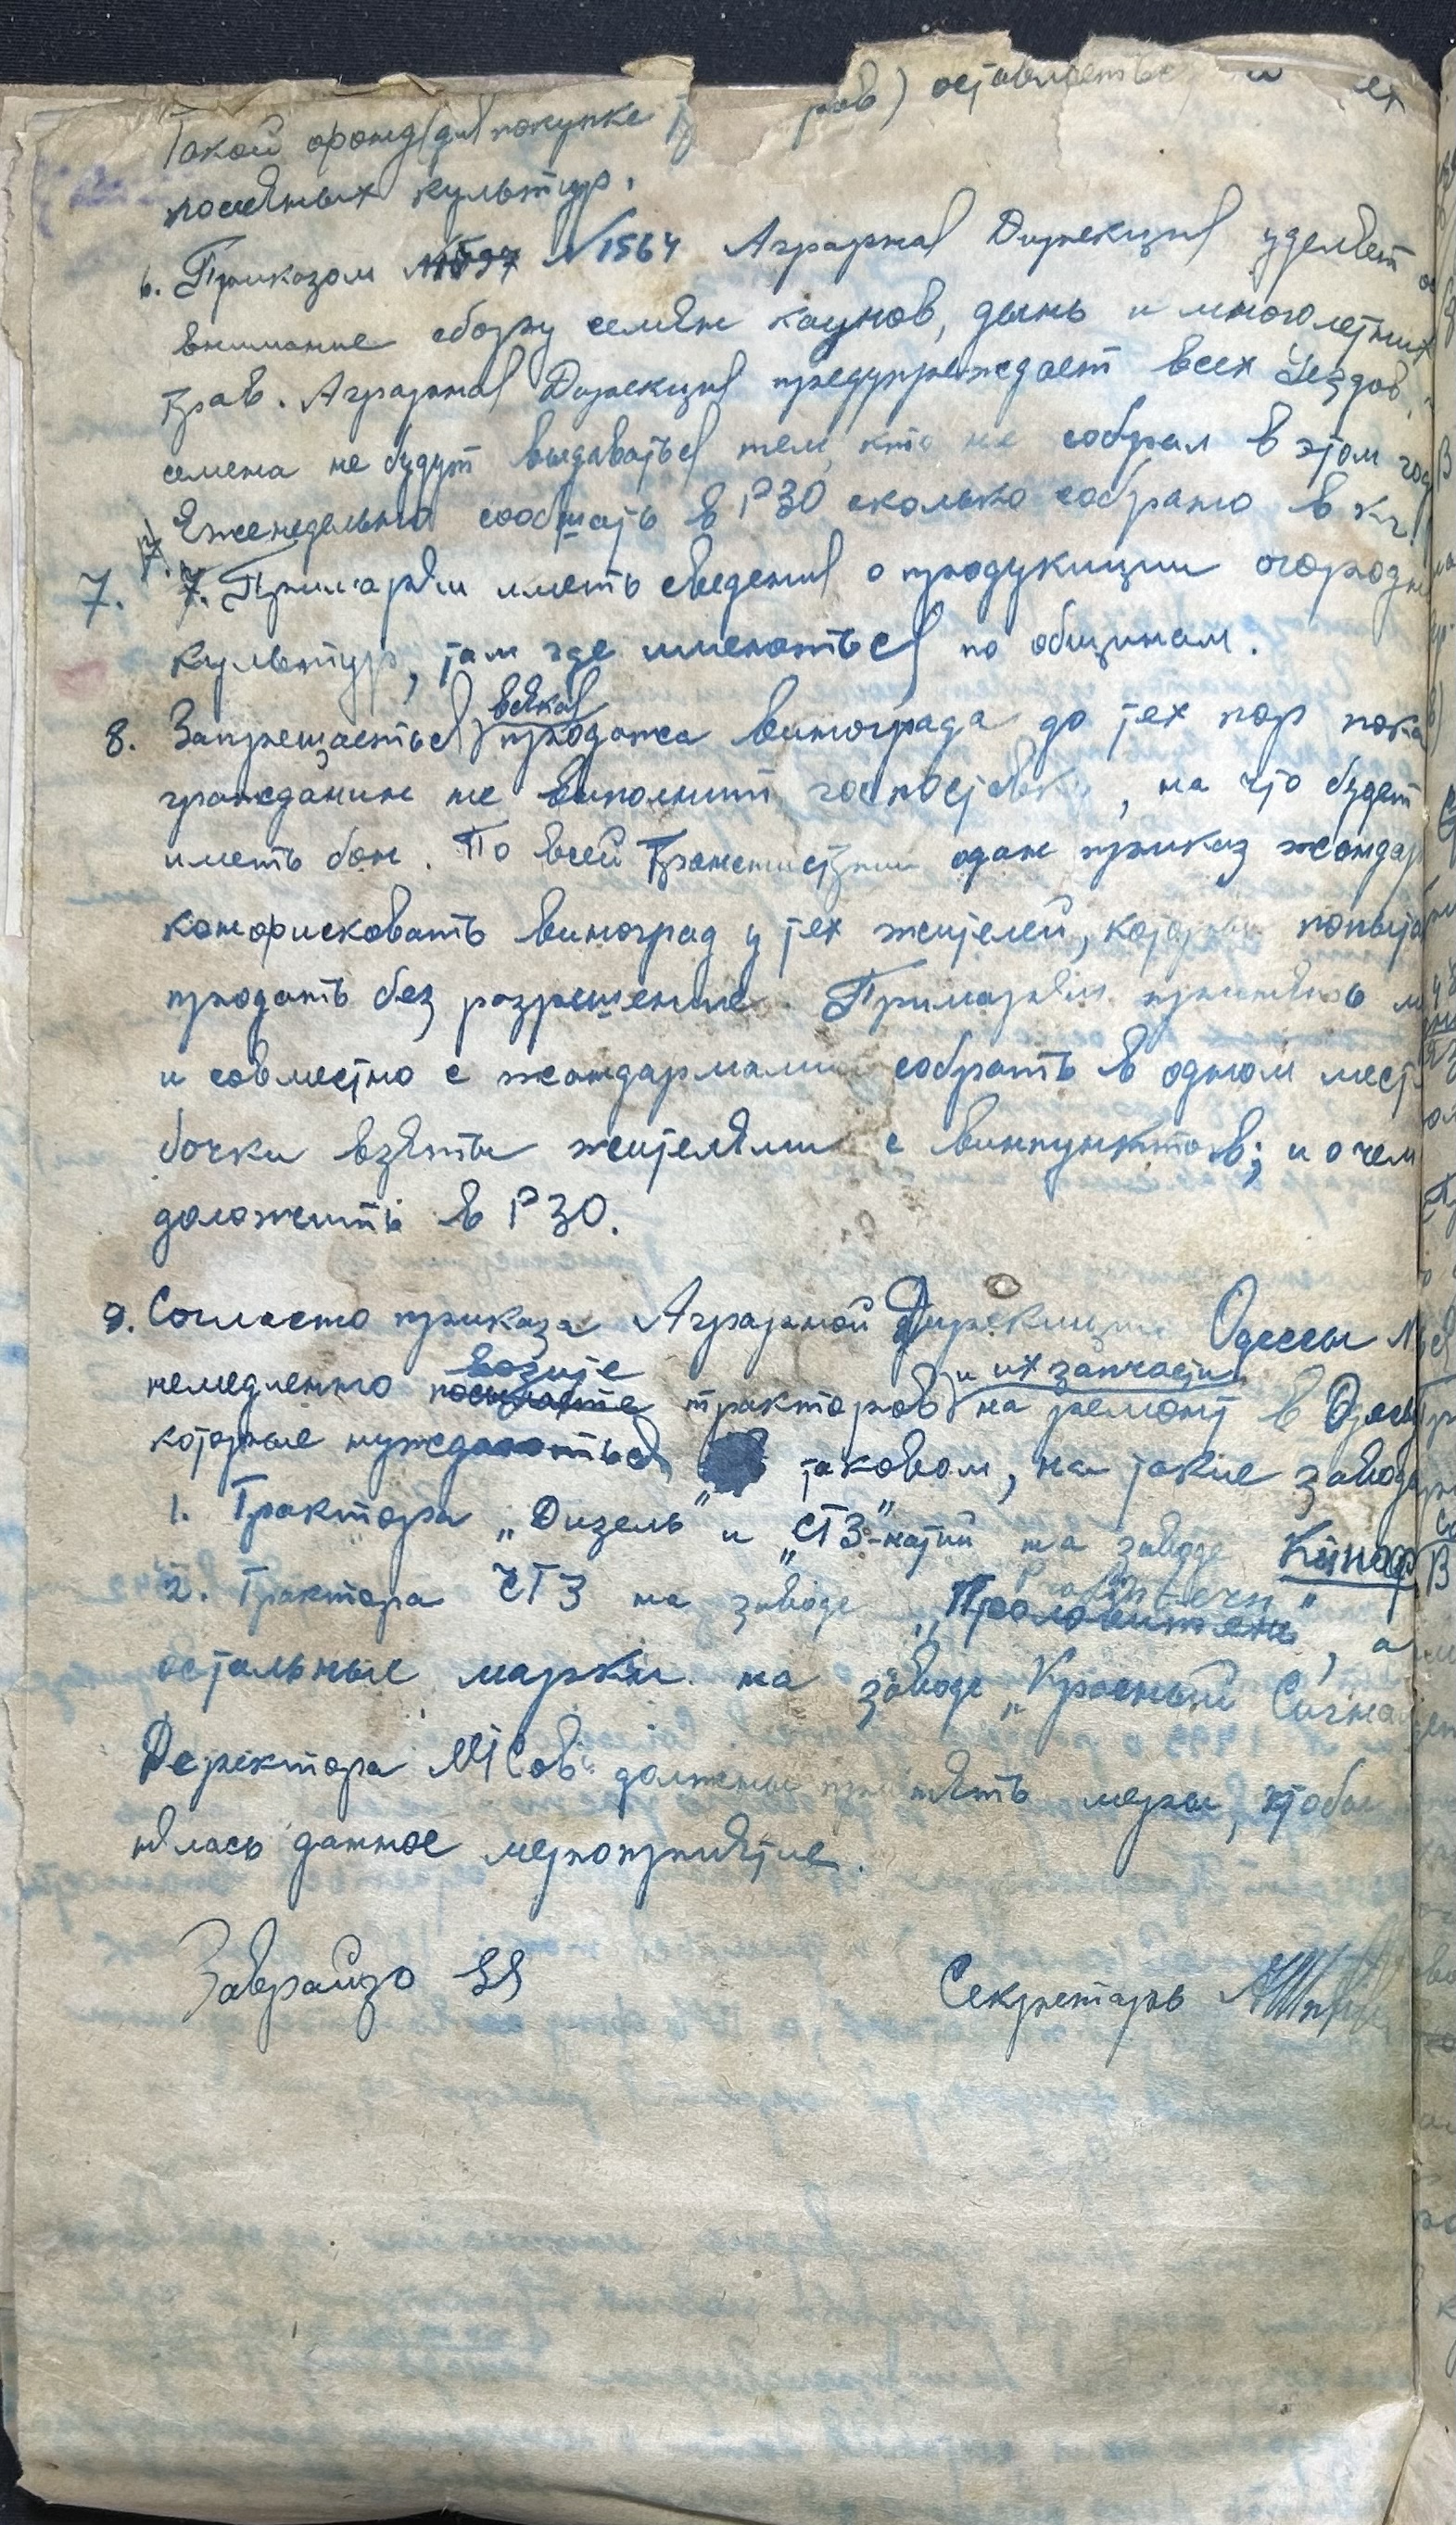 ров) оставляеться и их
Такой фонд для покупке
посевных культур.
6. Приказом N1597 N1564 Аграрная Дирекция уделяет
внимание сбору семян каунов, дынь и многолетних
трав. Аграрная Дирекция предупреждает всех Уездов,
семена не будут выдаваться тем, кто не собрал в этом год
Еженедельно сообщать в РЗО сколько собрано в кг.
7. 7. 7. Примарям иметь сведения о продукции огородн
культур, там где имеються по общинам.
всякая
8. Запрещаеться продажа винограда до тех пор пока
гражданин не выполнит госпоставки, на что будет
иметь бон. По всей Транснистрии одан приказ жандар
конфисковать виноград у тех жителей, которые попыта
продать без разрешение. Примарям принять м
и совместно с жандармами собрать в одном мест
бочки взяты жителями с винпунктов; и о чем
доложить в РЗО.
9. Согласно приказа Аграрной Дирекции Одессы N
возите и их запчасти
немедленно посылаете тракторов на ремонт в Одессу
которые нуждаються в таковом, на такие завода
1. Трактора „Дизель" и „СТЗ"-нати на заводе Кинап
Prodnitecni
2. Трактора ЧТЗ на заводе „Проловитени", а
остальные марки на заводе „Красный Сигна
Деректора МТСов должны принять меры, чтобы
нялась данное мероприятие.
Заврайзо
Секретарь